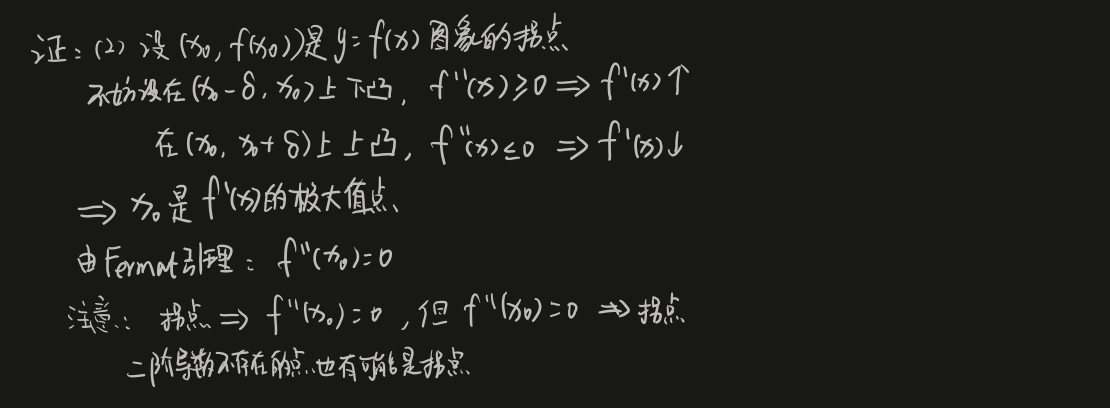 证：(2) 设 (x₀, f(x₀)) 是 y = f(x) 图象的拐点
不妨设在 (x₀ - δ, x₀) 上下凸，f''(x) ≥ 0 ⟹ f'(x) ↑
在 (x₀, x₀ + δ) 上上凸，f''(x) ≤ 0 ⟹ f'(x) ↓
⟹ x₀ 是 f'(x) 的极大值点
由 Fermat 引理：f''(x₀) = 0
注意：拐点 ⟹ f''(x₀) = 0，但 f''(x₀) = 0 ⇏ 拐点
二阶导数不存在的点也有可能是拐点